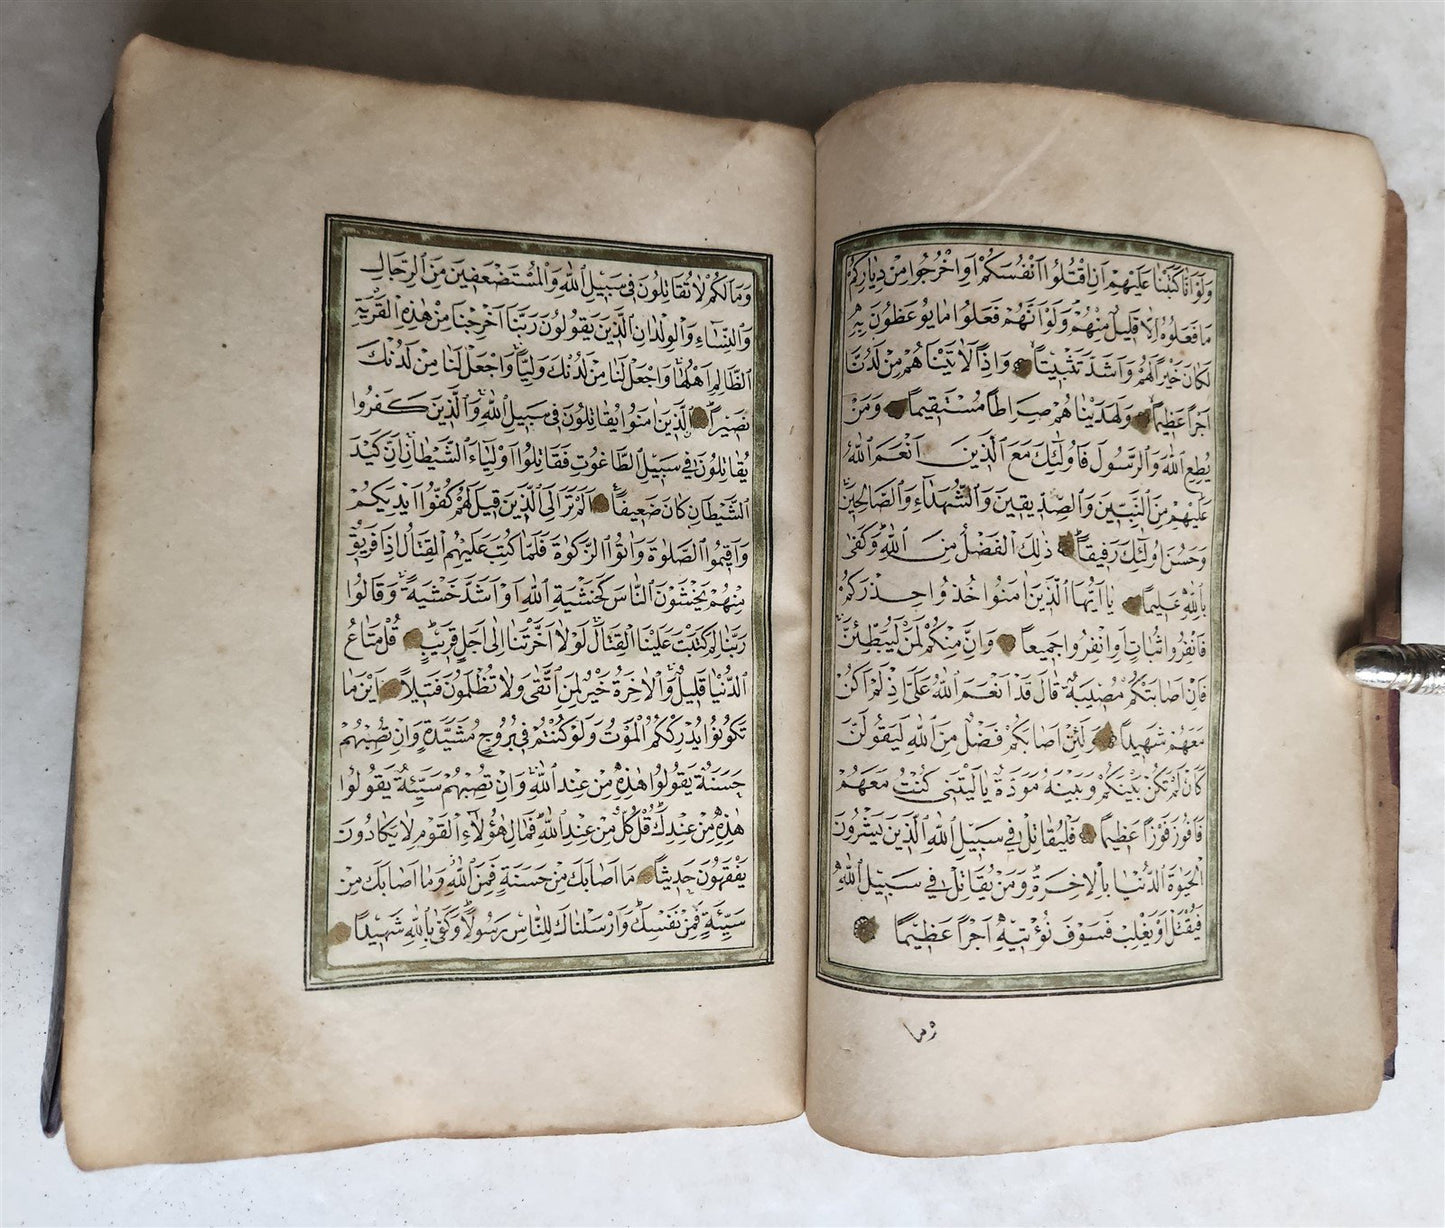 وَلَوْ اَنَّا كَتَبْنَا عَلَيْهِمْ اَنِ اقْتُلُوا اَنْفُسَكُمْ اَوِ اخْرُجُوا مِنْ دِيَارِكُمْ
مَا فَعَلُوهُ اِلَّا قَلِيلٌ مِنْهُمْ وَلَوْ اَنَّهُمْ فَعَلُوا مَا يُوعَظُونَ بِهِ
لَكَانَ خَيْرًا لَهُمْ وَاَشَدَّ تَثْبِيتًا وَاِذًا لَاٰتَيْنَاهُمْ مِنْ لَدُنَّا
اَجْرًا عَظِيمًا وَلَهَدَيْنَاهُمْ صِرَاطًا مُسْتَقِيمًا وَمَنْ
يُطِعِ اللّٰهَ وَالرَّسُولَ فَاُولٰئِكَ مَعَ الَّذِينَ اَنْعَمَ اللّٰهُ
عَلَيْهِمْ مِنَ النَّبِيِّينَ وَالصِّدِّيقِينَ وَالشُّهَدَاءِ وَالصَّالِحِينَ
وَحَسُنَ اُولٰئِكَ رَفِيقًا ذٰلِكَ الْفَضْلُ مِنَ اللّٰهِ وَكَفٰى
بِاللّٰهِ عَلِيمًا يَا اَيُّهَا الَّذِينَ اٰمَنُوا خُذُوا حِذْرَكُمْ
فَانْفِرُوا ثُبَاتٍ اَوِ انْفِرُوا جَمِيعًا وَاِنَّ مِنْكُمْ لَمَنْ لَيُبَطِّئَنَّ
فَاِنْ اَصَابَتْكُمْ مُصِيبَةٌ قَالَ قَدْ اَنْعَمَ اللّٰهُ عَلَيَّ اِذْ لَمْ اَكُنْ
مَعَهُمْ شَهِيدًا وَلَئِنْ اَصَابَكُمْ فَضْلٌ مِنَ اللّٰهِ لَيَقُولَنَّ
كَاَنْ لَمْ تَكُنْ بَيْنَكُمْ وَبَيْنَهُ مَوَدَّةٌ يَا لَيْتَنِي كُنْتُ مَعَهُمْ
فَاَفُوزَ فَوْزًا عَظِيمًا فَلْيُقَاتِلْ فِي سَبِيلِ اللّٰهِ الَّذِينَ يَشْرُونَ
الْحَيٰوةَ الدُّنْيَا بِالْاٰخِرَةِ وَمَنْ يُقَاتِلْ فِي سَبِيلِ اللّٰهِ
فَيُقْتَلْ اَوْ يَغْلِبْ فَسَوْفَ نُؤْتِيهِ اَجْرًا عَظِيمًا
وَمَا لَكُمْ لَا تُقَاتِلُونَ فِي سَبِيلِ اللّٰهِ وَالْمُسْتَضْعَفِينَ مِنَ الرِّجَالِ
وَالنِّسَاءِ وَالْوِلْدَانِ الَّذِينَ يَقُولُونَ رَبَّنَا اَخْرِجْنَا مِنْ هٰذِهِ الْقَرْيَةِ
الظَّالِمِ اَهْلُهَا وَاجْعَلْ لَنَا مِنْ لَدُنْكَ وَلِيًّا وَاجْعَلْ لَنَا مِنْ لَدُنْكَ
نَصِيرًا اَلَّذِينَ اٰمَنُوا يُقَاتِلُونَ فِي سَبِيلِ اللّٰهِ وَالَّذِينَ كَفَرُوا
يُقَاتِلُونَ فِي سَبِيلِ الطَّاغُوتِ فَقَاتِلُوا اَوْلِيَاءَ الشَّيْطَانِ اِنَّ كَيْدَ
الشَّيْطَانِ كَانَ ضَعِيفًا اَلَمْ تَرَ اِلَى الَّذِينَ قِيلَ لَهُمْ كُفُّوا اَيْدِيَكُمْ
وَاَقِيمُوا الصَّلٰوةَ وَاٰتُوا الزَّكٰوةَ فَلَمَّا كُتِبَ عَلَيْهِمُ الْقِتَالُ اِذَا فَرِيقٌ
مِنْهُمْ يَخْشَوْنَ النَّاسَ كَخَشْيَةِ اللّٰهِ اَوْ اَشَدَّ خَشْيَةً وَقَالُوا
رَبَّنَا لِمَ كَتَبْتَ عَلَيْنَا الْقِتَالَ لَوْلَا اَخَّرْتَنَا اِلٰى اَجَلٍ قَرِيبٍ قُلْ مَتَاعُ
الدُّنْيَا قَلِيلٌ وَالْاٰخِرَةُ خَيْرٌ لِمَنِ اتَّقٰى وَلَا تُظْلَمُونَ فَتِيلًا اَيْنَ مَا
تَكُونُوا يُدْرِكْكُمُ الْمَوْتُ وَلَوْ كُنْتُمْ فِي بُرُوجٍ مُشَيَّدَةٍ وَاِنْ تُصِبْهُمْ
حَسَنَةٌ يَقُولُوا هٰذِهِ مِنْ عِنْدِ اللّٰهِ وَاِنْ تُصِبْهُمْ سَيِّئَةٌ يَقُولُوا
هٰذِهِ مِنْ عِنْدِكَ قُلْ كُلٌّ مِنْ عِنْدِ اللّٰهِ فَمَالِ هٰؤُلَاءِ الْقَوْمِ لَا يَكَادُونَ
يَفْقَهُونَ حَدِيثًا مَا اَصَابَكَ مِنْ حَسَنَةٍ فَمِنَ اللّٰهِ وَمَا اَصَابَكَ مِنْ
سَيِّئَةٍ فَمِنْ نَفْسِكَ وَاَرْسَلْنَاكَ لِلنَّاسِ رَسُولًا وَكَفٰى بِاللّٰهِ شَهِيدًا